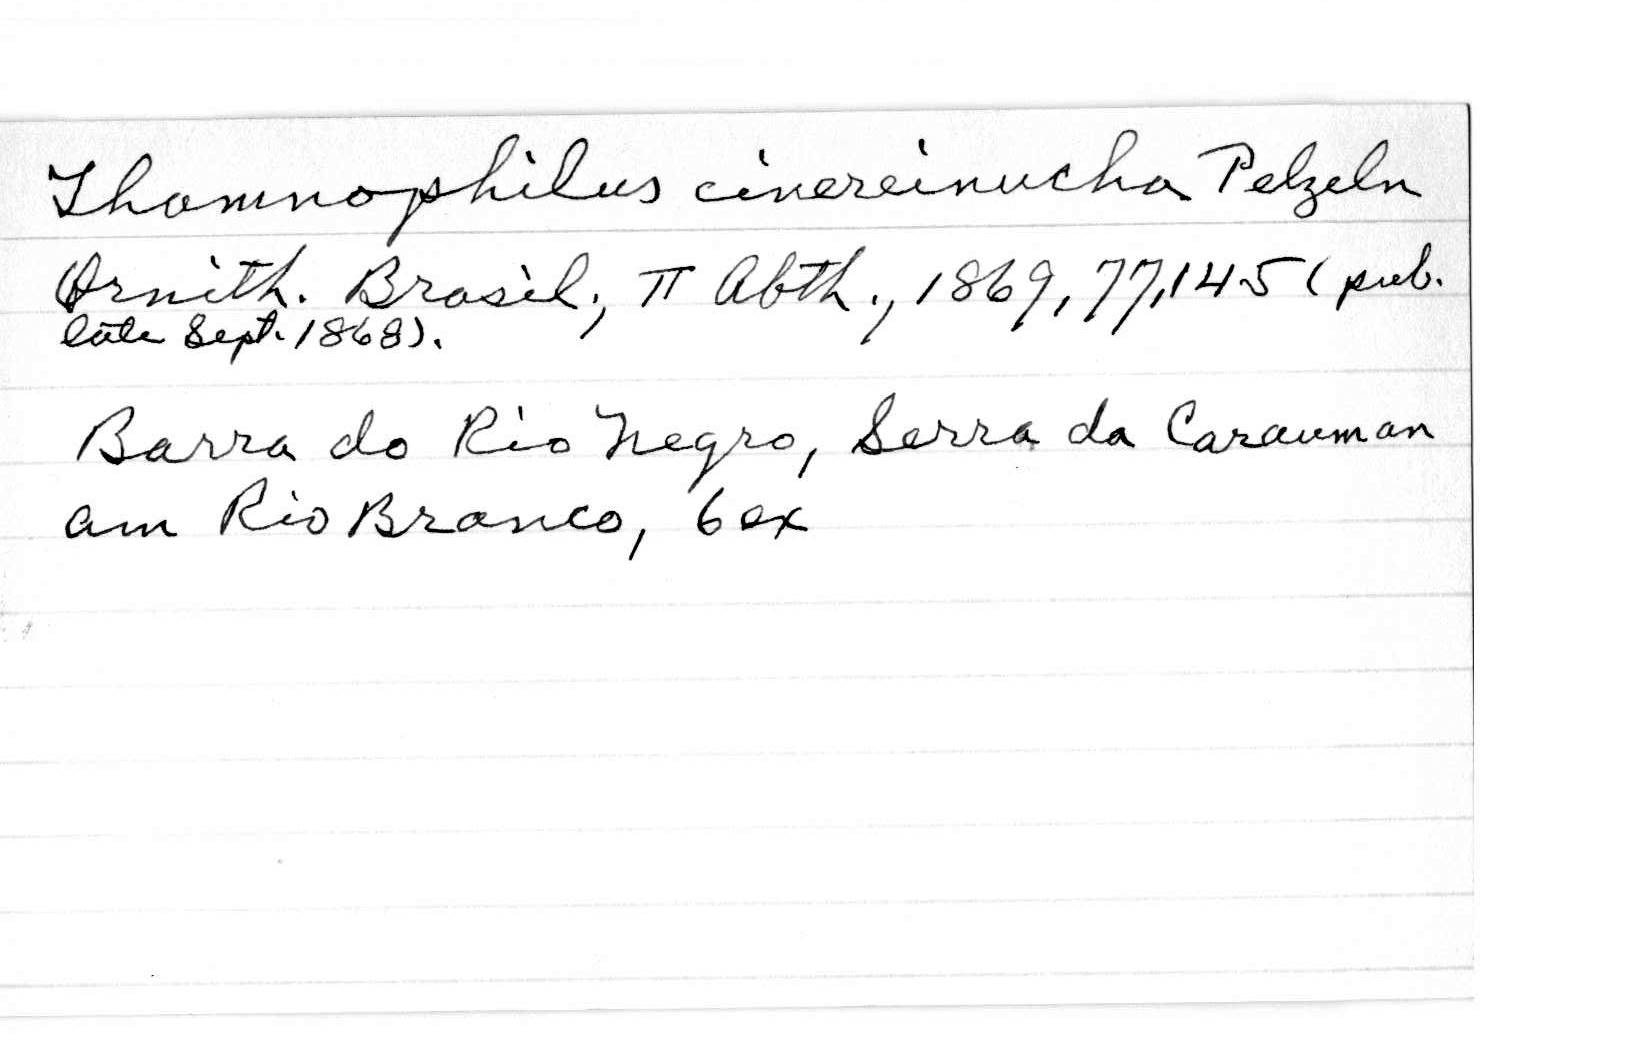 Thamnophilus cinereinucha Pelzeln
Ornith. Brasil, II Abth., 1869, 77,145 (pub.
late Sept. 1868).
Barra do Rio Negro, Serra da Carauman
am Rio Branco, 6 ex